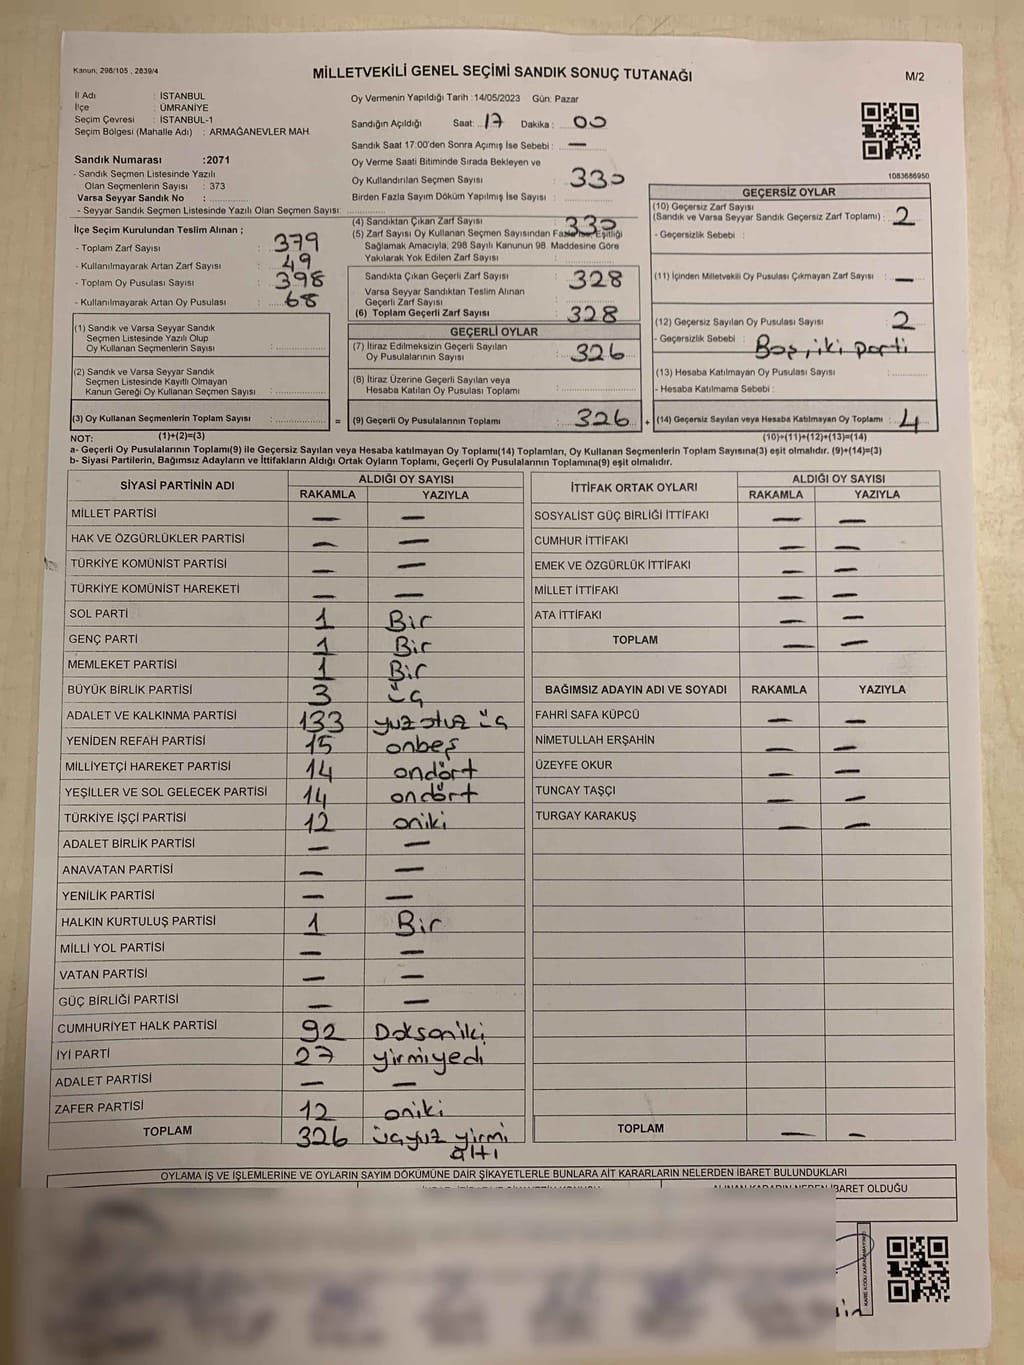 Kanun; 298/105 , 2839/4
MİLLETVEKİLİ GENEL SEÇİMİ SANDIK SONUÇ TUTANAĞI
M/2
İl Adı : İSTANBUL
İlçe : ÜMRANİYE
Seçim Çevresi : İSTANBUL-1
Seçim Bölgesi (Mahalle Adı) : ARMAĞANEVLER MAH.
Oy Vermenin Yapıldığı Tarih :14/05/2023 Gün: Pazar
Sandığın Açıldığı Saat: 17 Dakika : 00
Sandık Saat 17:00'den Sonra Açımış İse Sebebi : —
Oy Verme Saati Bitiminde Sırada Bekleyen ve
Oy Kullandırılan Seçmen Sayısı : 330
Birden Fazla Sayım Döküm Yapılmış İse Sayısı :
Sandık Numarası :2071
- Sandık Seçmen Listesinde Yazılı
Olan Seçmenlerin Sayısı : 373
Varsa Seyyar Sandık No :
- Seyyar Sandık Seçmen Listesinde Yazılı Olan Seçmen Sayısı:
1083686950
İlçe Seçim Kurulundan Teslim Alınan ;
- Toplam Zarf Sayısı : 379
- Kullanılmayarak Artan Zarf Sayısı : 49
- Toplam Oy Pusulası Sayısı : 398
- Kullanılmayarak Artan Oy Pusulası : 68
(4) Sandıktan Çıkan Zarf Sayısı 330
(5) Zarf Sayısı Oy Kullanan Seçmen Sayısından Fazla ise, Eşitliği
Sağlamak Amacıyla; 298 Sayılı Kanunun 98. Maddesine Göre
Yakılarak Yok Edilen Zarf Sayısı :
Sandıkta Çıkan Geçerli Zarf Sayısı 328
Varsa Seyyar Sandıktan Teslim Alınan
Geçerli Zarf Sayısı
(6) Toplam Geçerli Zarf Sayısı 328
GEÇERLİ OYLAR
(7) İtiraz Edilmeksizin Geçerli Sayılan
Oy Pusulalarının Sayısı : 326
(8) İtiraz Üzerine Geçerli Sayılan veya
Hesaba Katılan Oy Pusulası Toplamı :
(9) Geçerli Oy Pusulalarının Toplamı 326
GEÇERSİZ OYLAR
(10) Geçersiz Zarf Sayısı
(Sandık ve Varsa Seyyar Sandık Geçersiz Zarf Toplamı) : 2
- Geçersizlik Sebebi :
(11) İçinden Milletvekili Oy Pusulası Çıkmayan Zarf Sayısı : —
(12) Geçersiz Sayılan Oy Pusulası Sayısı : 2
- Geçersizlik Sebebi : Boş, iki parti
(13) Hesaba Katılmayan Oy Pusulası Sayısı :
- Hesaba Katılmama Sebebi :
(14) Geçersiz Sayılan veya Hesaba Katılmayan Oy Toplamı : 4
(10)+(11)+(12)+(13)=(14)
(1) Sandık ve Varsa Seyyar Sandık
Seçmen Listesinde Yazılı Olup
Oy Kullanan Seçmenlerin Sayısı :
(2) Sandık ve Varsa Seyyar Sandık
Seçmen Listesinde Kayıtlı Olmayan
Kanun Gereği Oy Kullanan Seçmen Sayısı :
(3) Oy Kullanan Seçmenlerin Toplam Sayısı :
=
+
NOT: (1)+(2)=(3)
a- Geçerli Oy Pusulalarının Toplamı(9) ile Geçersiz Sayılan veya Hesaba katılmayan Oy Toplamı(14) Toplamları, Oy Kullanan Seçmenlerin Toplam Sayısına(3) eşit olmalıdır. (9)+(14)=(3)
b- Siyasi Partilerin, Bağımsız Adayların ve İttifakların Aldığı Ortak Oyların Toplamı, Geçerli Oy Pusulalarının Toplamına(9) eşit olmalıdır.
SİYASİ PARTİNİN ADI ALDIĞI OY SAYISI
RAKAMLA YAZIYLA
MİLLET PARTİSİ — —
HAK VE ÖZGÜRLÜKLER PARTİSİ — —
TÜRKİYE KOMÜNİST PARTİSİ — —
TÜRKİYE KOMÜNİST HAREKETİ — —
SOL PARTİ 1 Bir
GENÇ PARTİ 1 Bir
MEMLEKET PARTİSİ 1 Bir
BÜYÜK BİRLİK PARTİSİ 3 üç
ADALET VE KALKINMA PARTİSİ 133 yuz otuz üç
YENİDEN REFAH PARTİSİ 15 onbeş
MİLLİYETÇİ HAREKET PARTİSİ 14 ondört
YEŞİLLER VE SOL GELECEK PARTİSİ 14 ondört
TÜRKİYE İŞÇİ PARTİSİ 12 oniki
ADALET BİRLİK PARTİSİ — —
ANAVATAN PARTİSİ — —
YENİLİK PARTİSİ — —
HALKIN KURTULUŞ PARTİSİ 1 Bir
MİLLİ YOL PARTİSİ — —
VATAN PARTİSİ — —
GÜÇ BİRLİĞİ PARTİSİ — —
CUMHURİYET HALK PARTİSİ 92 Doksaniki
İYİ PARTİ 27 yirmiyedi
ADALET PARTİSİ — —
ZAFER PARTİSİ 12 oniki
TOPLAM 326 üçyuz yirmi
altı
İTTİFAK ORTAK OYLARI ALDIĞI OY SAYISI
RAKAMLA YAZIYLA
SOSYALİST GÜÇ BİRLİĞİ İTTİFAKI — —
CUMHUR İTTİFAKI — —
EMEK VE ÖZGÜRLÜK İTTİFAKI — —
MİLLET İTTİFAKI — —
ATA İTTİFAKI — —
TOPLAM — —
BAĞIMSIZ ADAYIN ADI VE SOYADI RAKAMLA YAZIYLA
FAHRİ SAFA KÜPCÜ — —
NİMETULLAH ERŞAHİN — —
ÜZEYFE OKUR — —
TUNCAY TAŞÇI — —
TURGAY KARAKUŞ — —
TOPLAM — —
OYLAMA İŞ VE İŞLEMLERİNE VE OYLARIN SAYIM DÖKÜMÜNE DAİR ŞİKAYETLERLE BUNLARA AİT KARARLARIN NELERDEN İBARET BULUNDUKLARI
ALINAN KARARIN NEDEN İBARET OLDUĞU